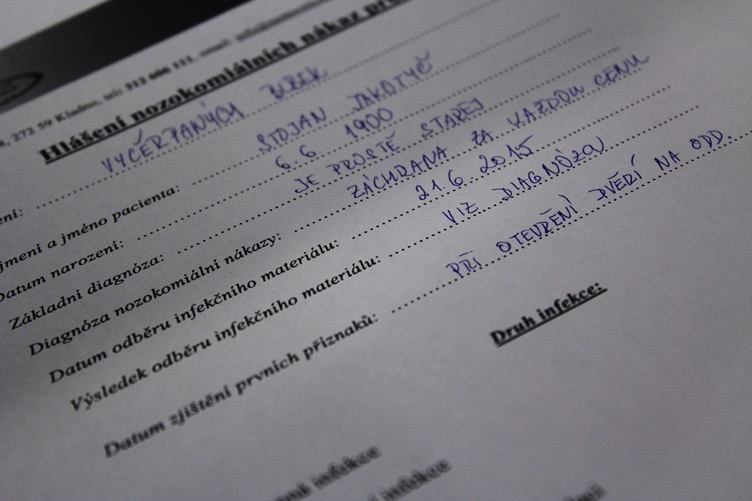 272 59 Kladno, tel: 312 606 111,
Hlášení nozokomiálních nákaz pro
VYČERPANÝCH
jmení a jméno pacienta: STOJAN JAKOTYČ
Datum narození: 6 6 1900
Základní diagnóza: JE PROSTĚ STAREJ
Diagnóza nozokomiální nákazy: ZÁCHRANA ZA KAŽDOU CENU
Datum odběru infekčního materiálu: 21 6. 2015
Výsledek odběru infekčního materiálu: VIZ DIAGNÓZOV
Datum zjištění prvních příznaků: PŘI OTEVŘENÍ DVĚŘÍ NA ODD.
Druh infekce:
infekce
infekce